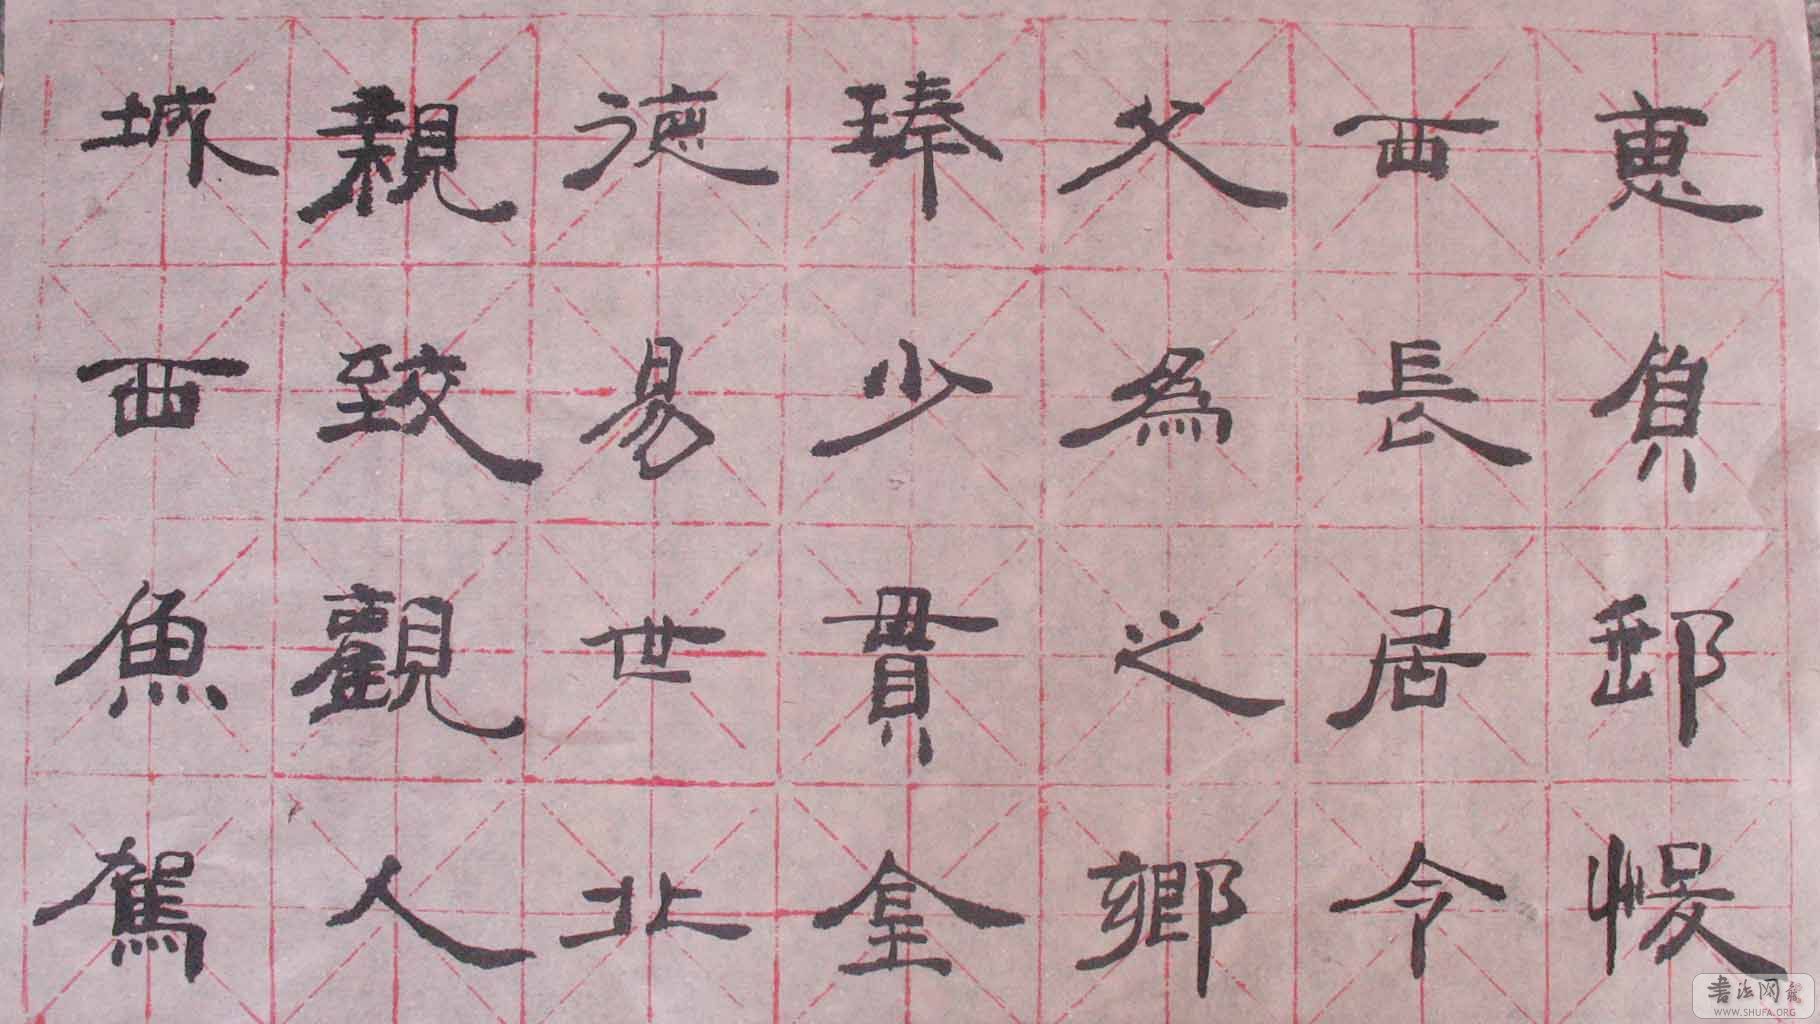 恵負郵
西長居令
父為之鄉
少貫
德易世北
親致觀人
城西魚駕
书法网
WWW.SHUFA.ORG